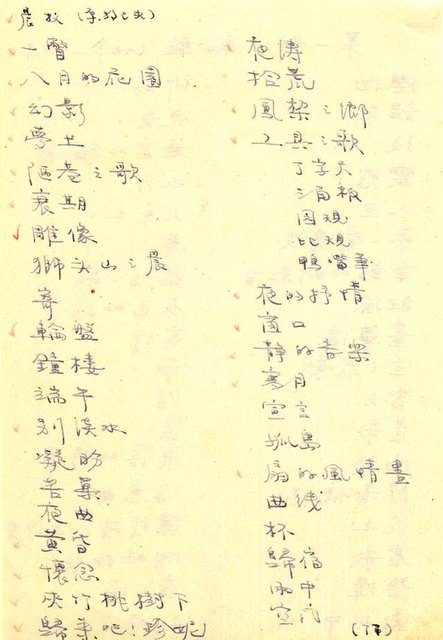 晨牧
一瞥
八月的花園
幻影
夢土
陋巷之歌
衰期
雕像
獅头山之晨
寄
輪盤
鐘樓
端午
别淡水
凝盼
苦藥
夜曲
黃昏
懷念
夾竹桃樹下
歸來吧！珍妮
夜涛
拾荒
鳳梨之鄉
工具之歌
丁字尺
三角板
圆規
比規
鴨嘴筆
夜的抒情
窗口
静的音樂
寒月
宣言
孤島
扇的風情畫
曲线
杯
歸宿
雨中
空門